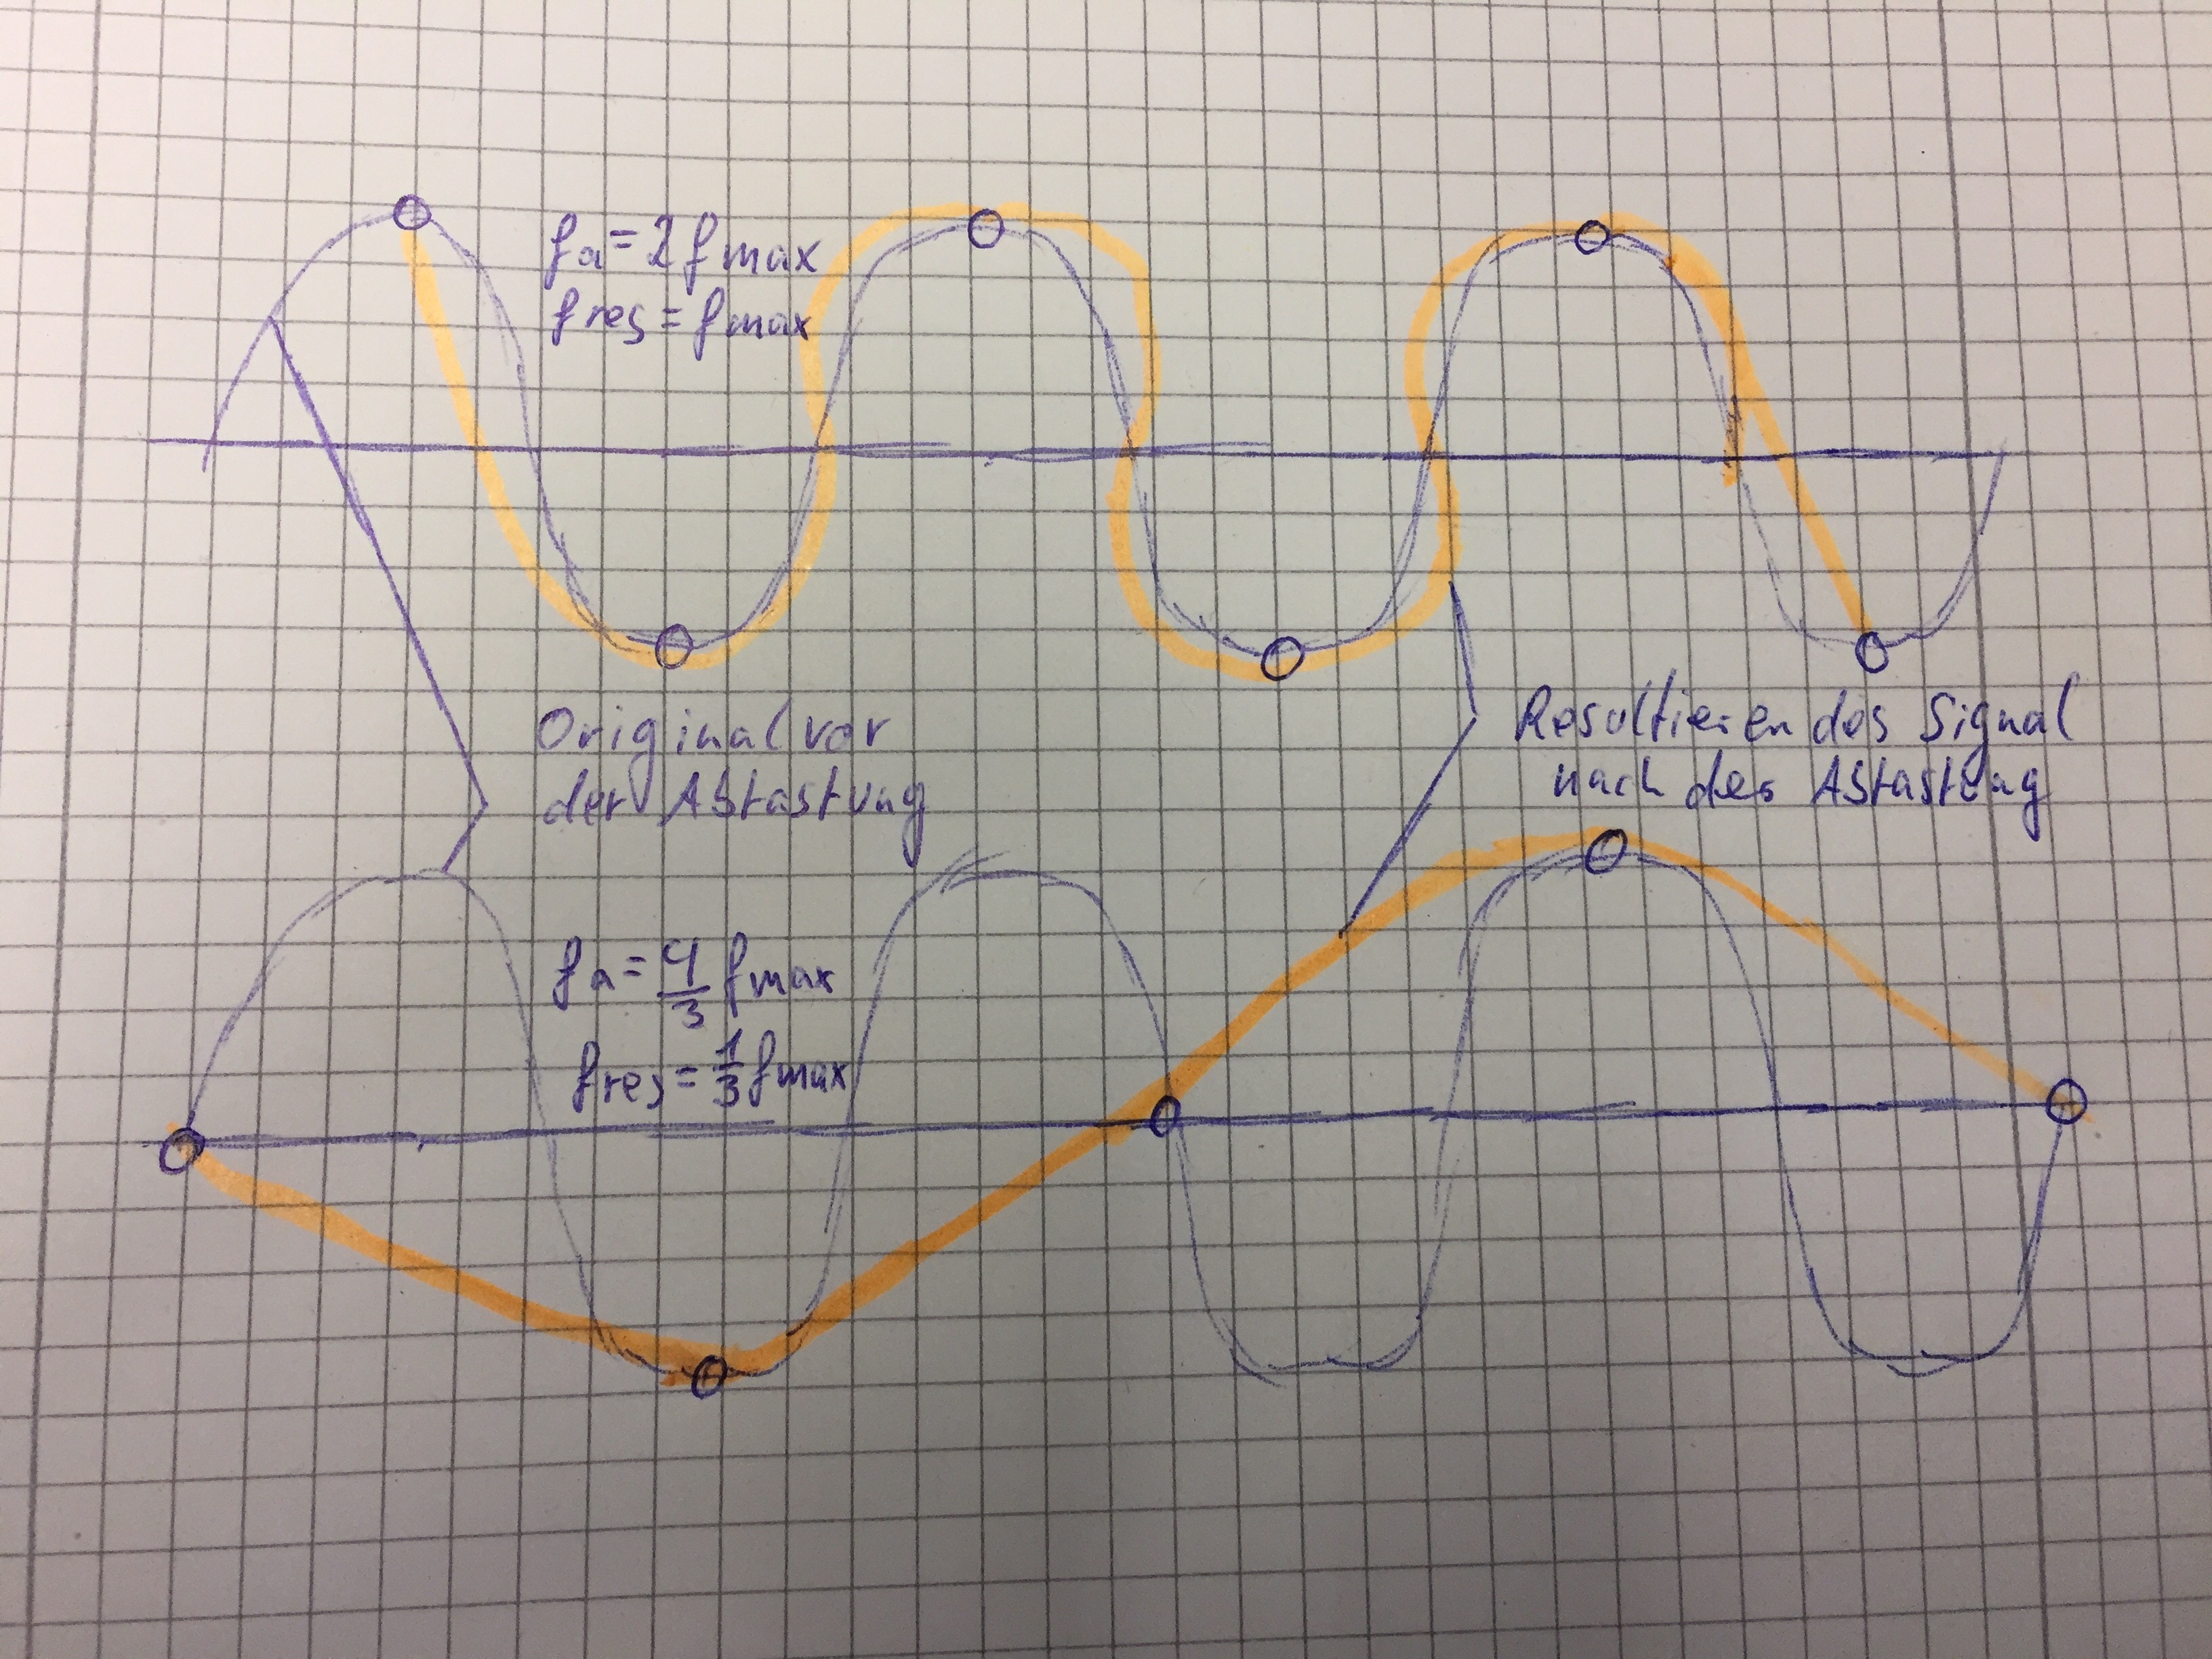 fa = 2 fmax
fres = fmax
Original vor
der Abtastung
Resultierendes Signal
nach der Abtastung
fa = 4/3 fmax
fres = 1/3 fmax